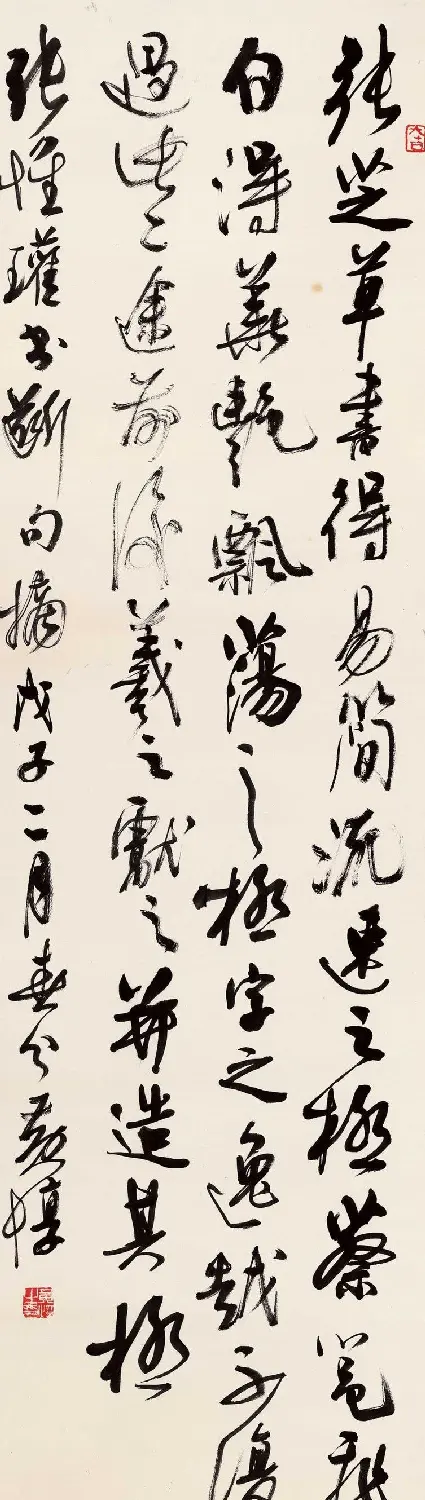 張芝草書得易簡流速之極蔡邕飛
白得華艷飄蕩之極字之逸越不復
過此二途前後羲之獻之并造其極
張懷瓘書斷句摘戊子二月春分黃惇
大吉